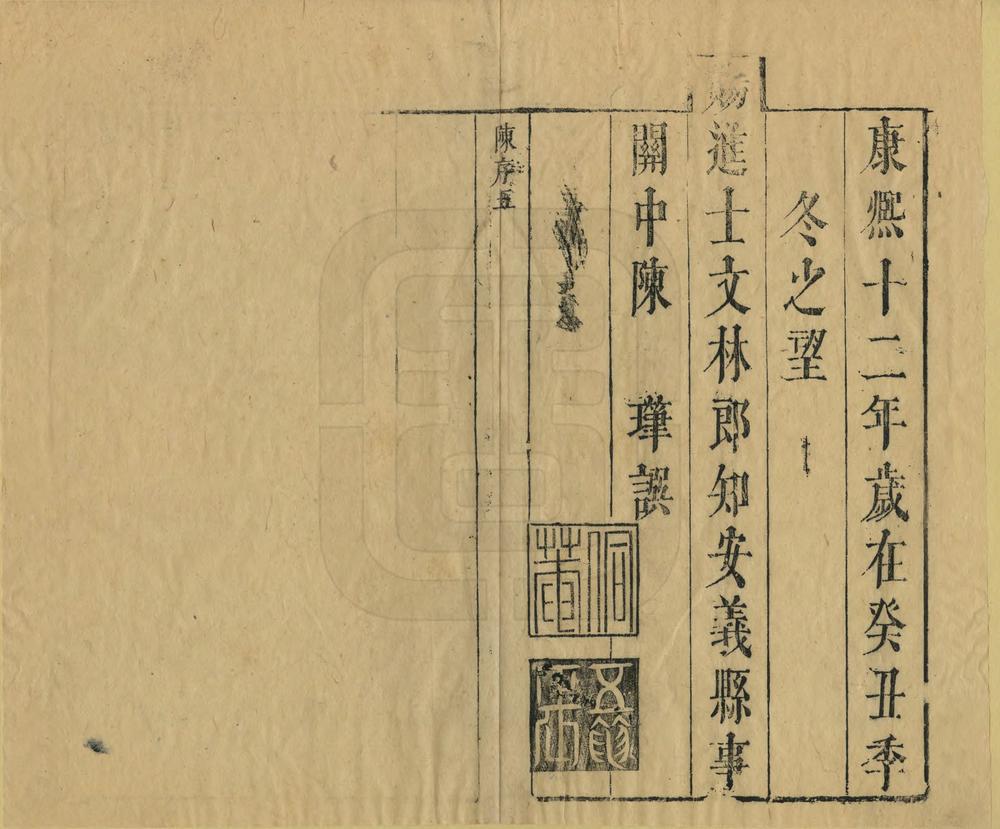 康熈十二年歲在癸丑季
冬之望
賜進士文林郎知安義縣事
關中陳　　瑾譔
陳序五